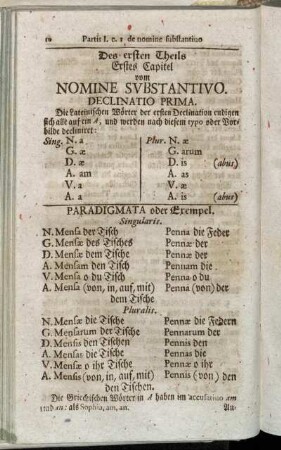 10 Partis I. c. 1 de nomine substantivo
Des ersten Theils
Erstes Capitel
vom
NOMINE SVBSTANTIVO.
DECLINATIO PRIMA.
Die Lateinischen Wörter der ersten Declination endigen
sich alle auf ein A, und werden nach diesem typo oder Vor-
bilde decliniret:
Sing. N. a Plur. N. æ
G. æ G. arum
D. æ D. is (abus)
A. am A. as
V. a V. æ
A. a A. is (abus)
PARADIGMATA oder Exempel.
Singularis.
N. Mensa der Tisch Penna die Feder
G. Mensæ des Tisches Pennæ der
D. Mensæ dem Tische Pennæ der
A. Mensam den Tisch Pennam die
V. Mensa o du Tisch Penna o du
A. Mensa (von, in, auf, mit) Penna (von) der
dem Tische
Pluralis.
N. Mensæ die Tische Pennæ die Federn
G. Mensarum der Tische Pennarum der
D. Mensis den Tischen Pennis den
A. Mensas die Tische Pennas die
V. Mensæ o ihr Tische Pennæ o ihr
A. Mensis (von, in, auf, mit) Pennis (von) den
den Tischen.
Die Griechischen Wörter in A haben im accusativo am
und an: als Sophia, am, an. Au-